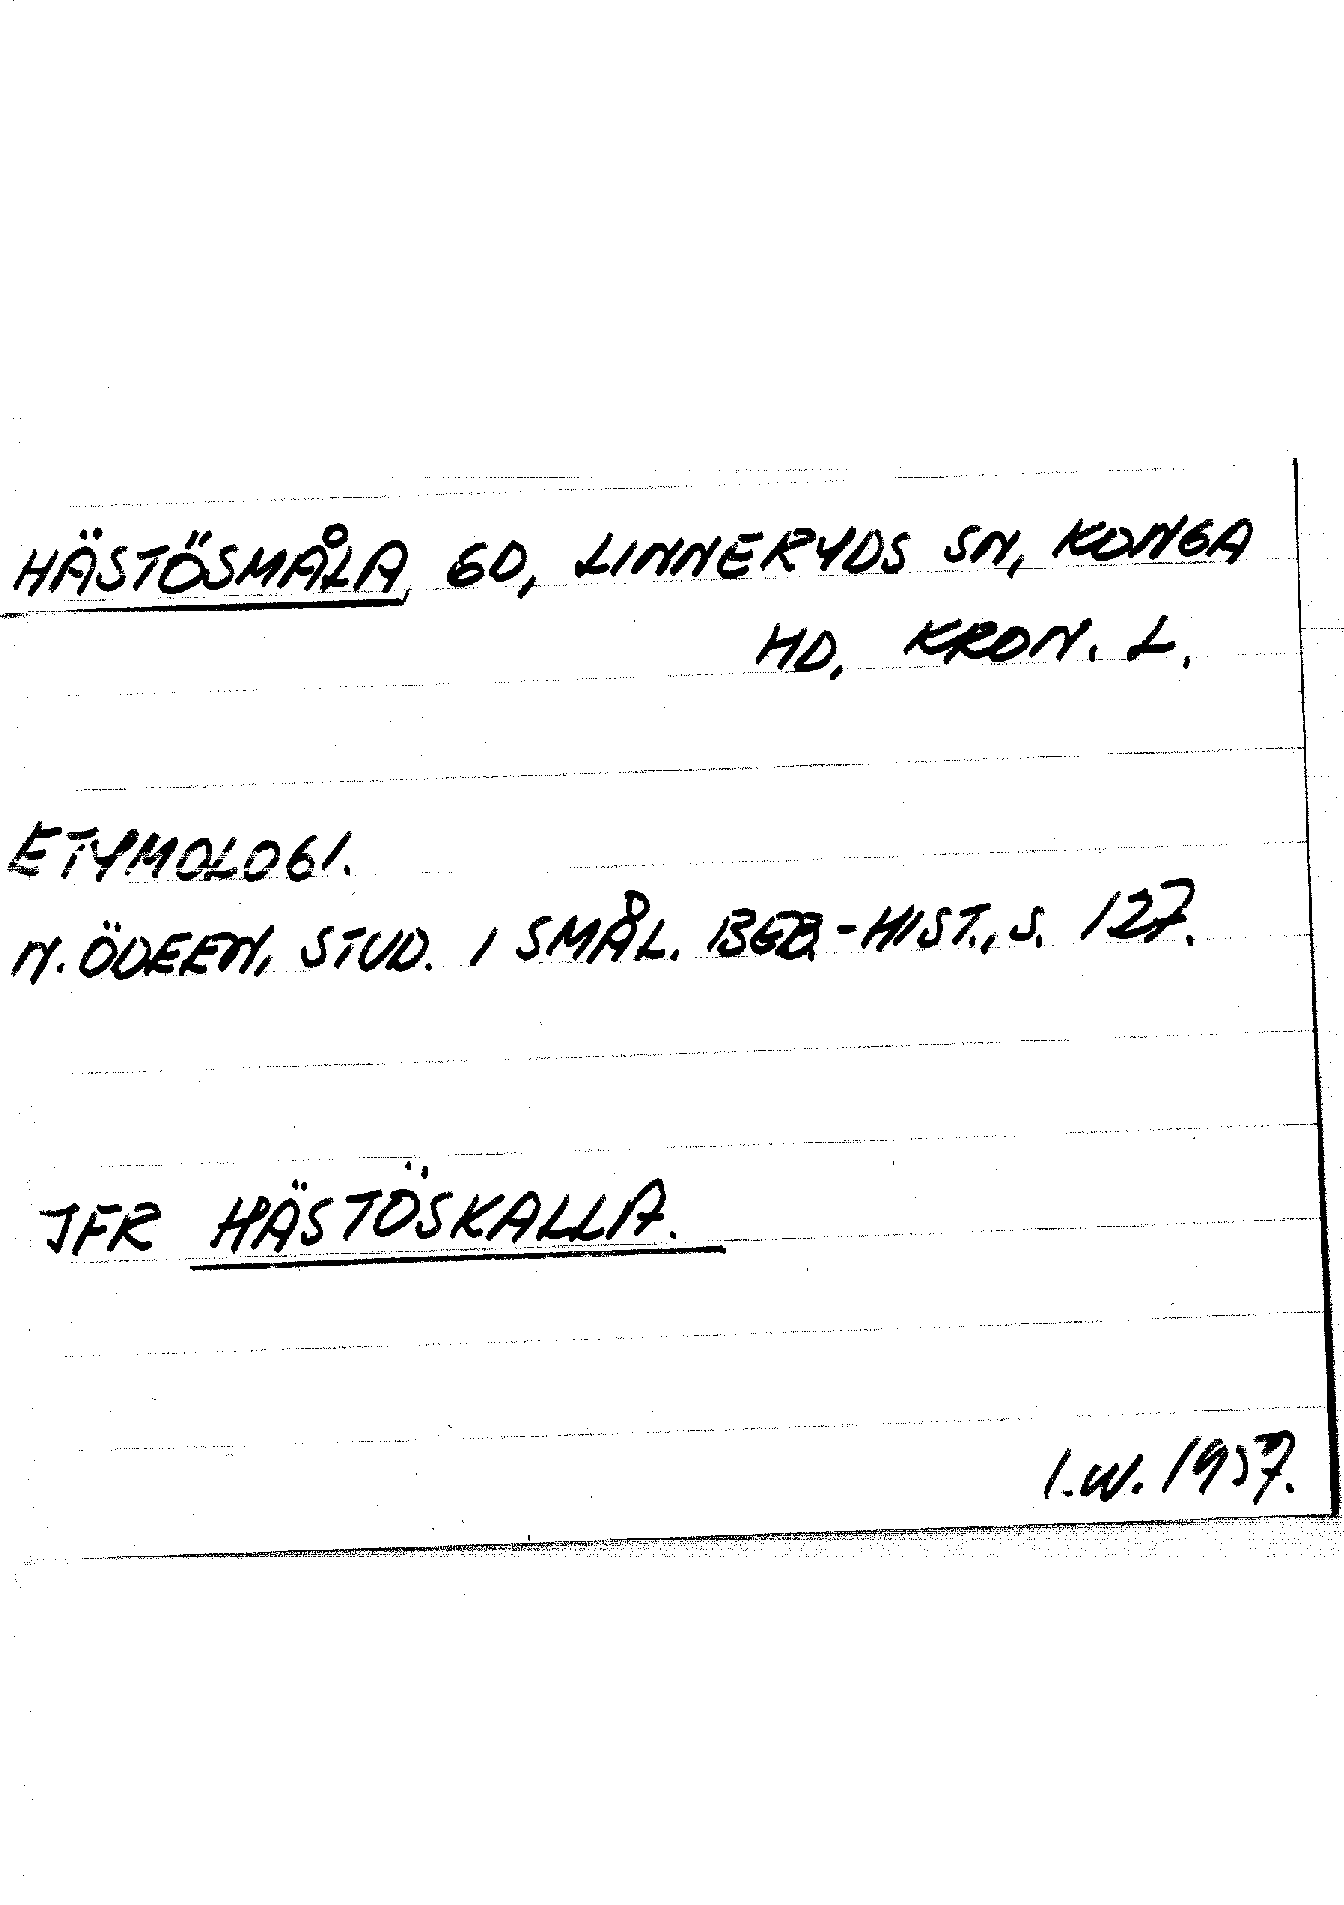 HÄSTÖSMÅLA, GD, LINNERYDS SN, KONGA
HD, KRON. L.
ETYMOLOGI.
N. ÖDEEN, STUD. I SMÅL. BEB.-HIST., S. 127.
JFR HÄSTÖSKALLA.
I.W. 1957.